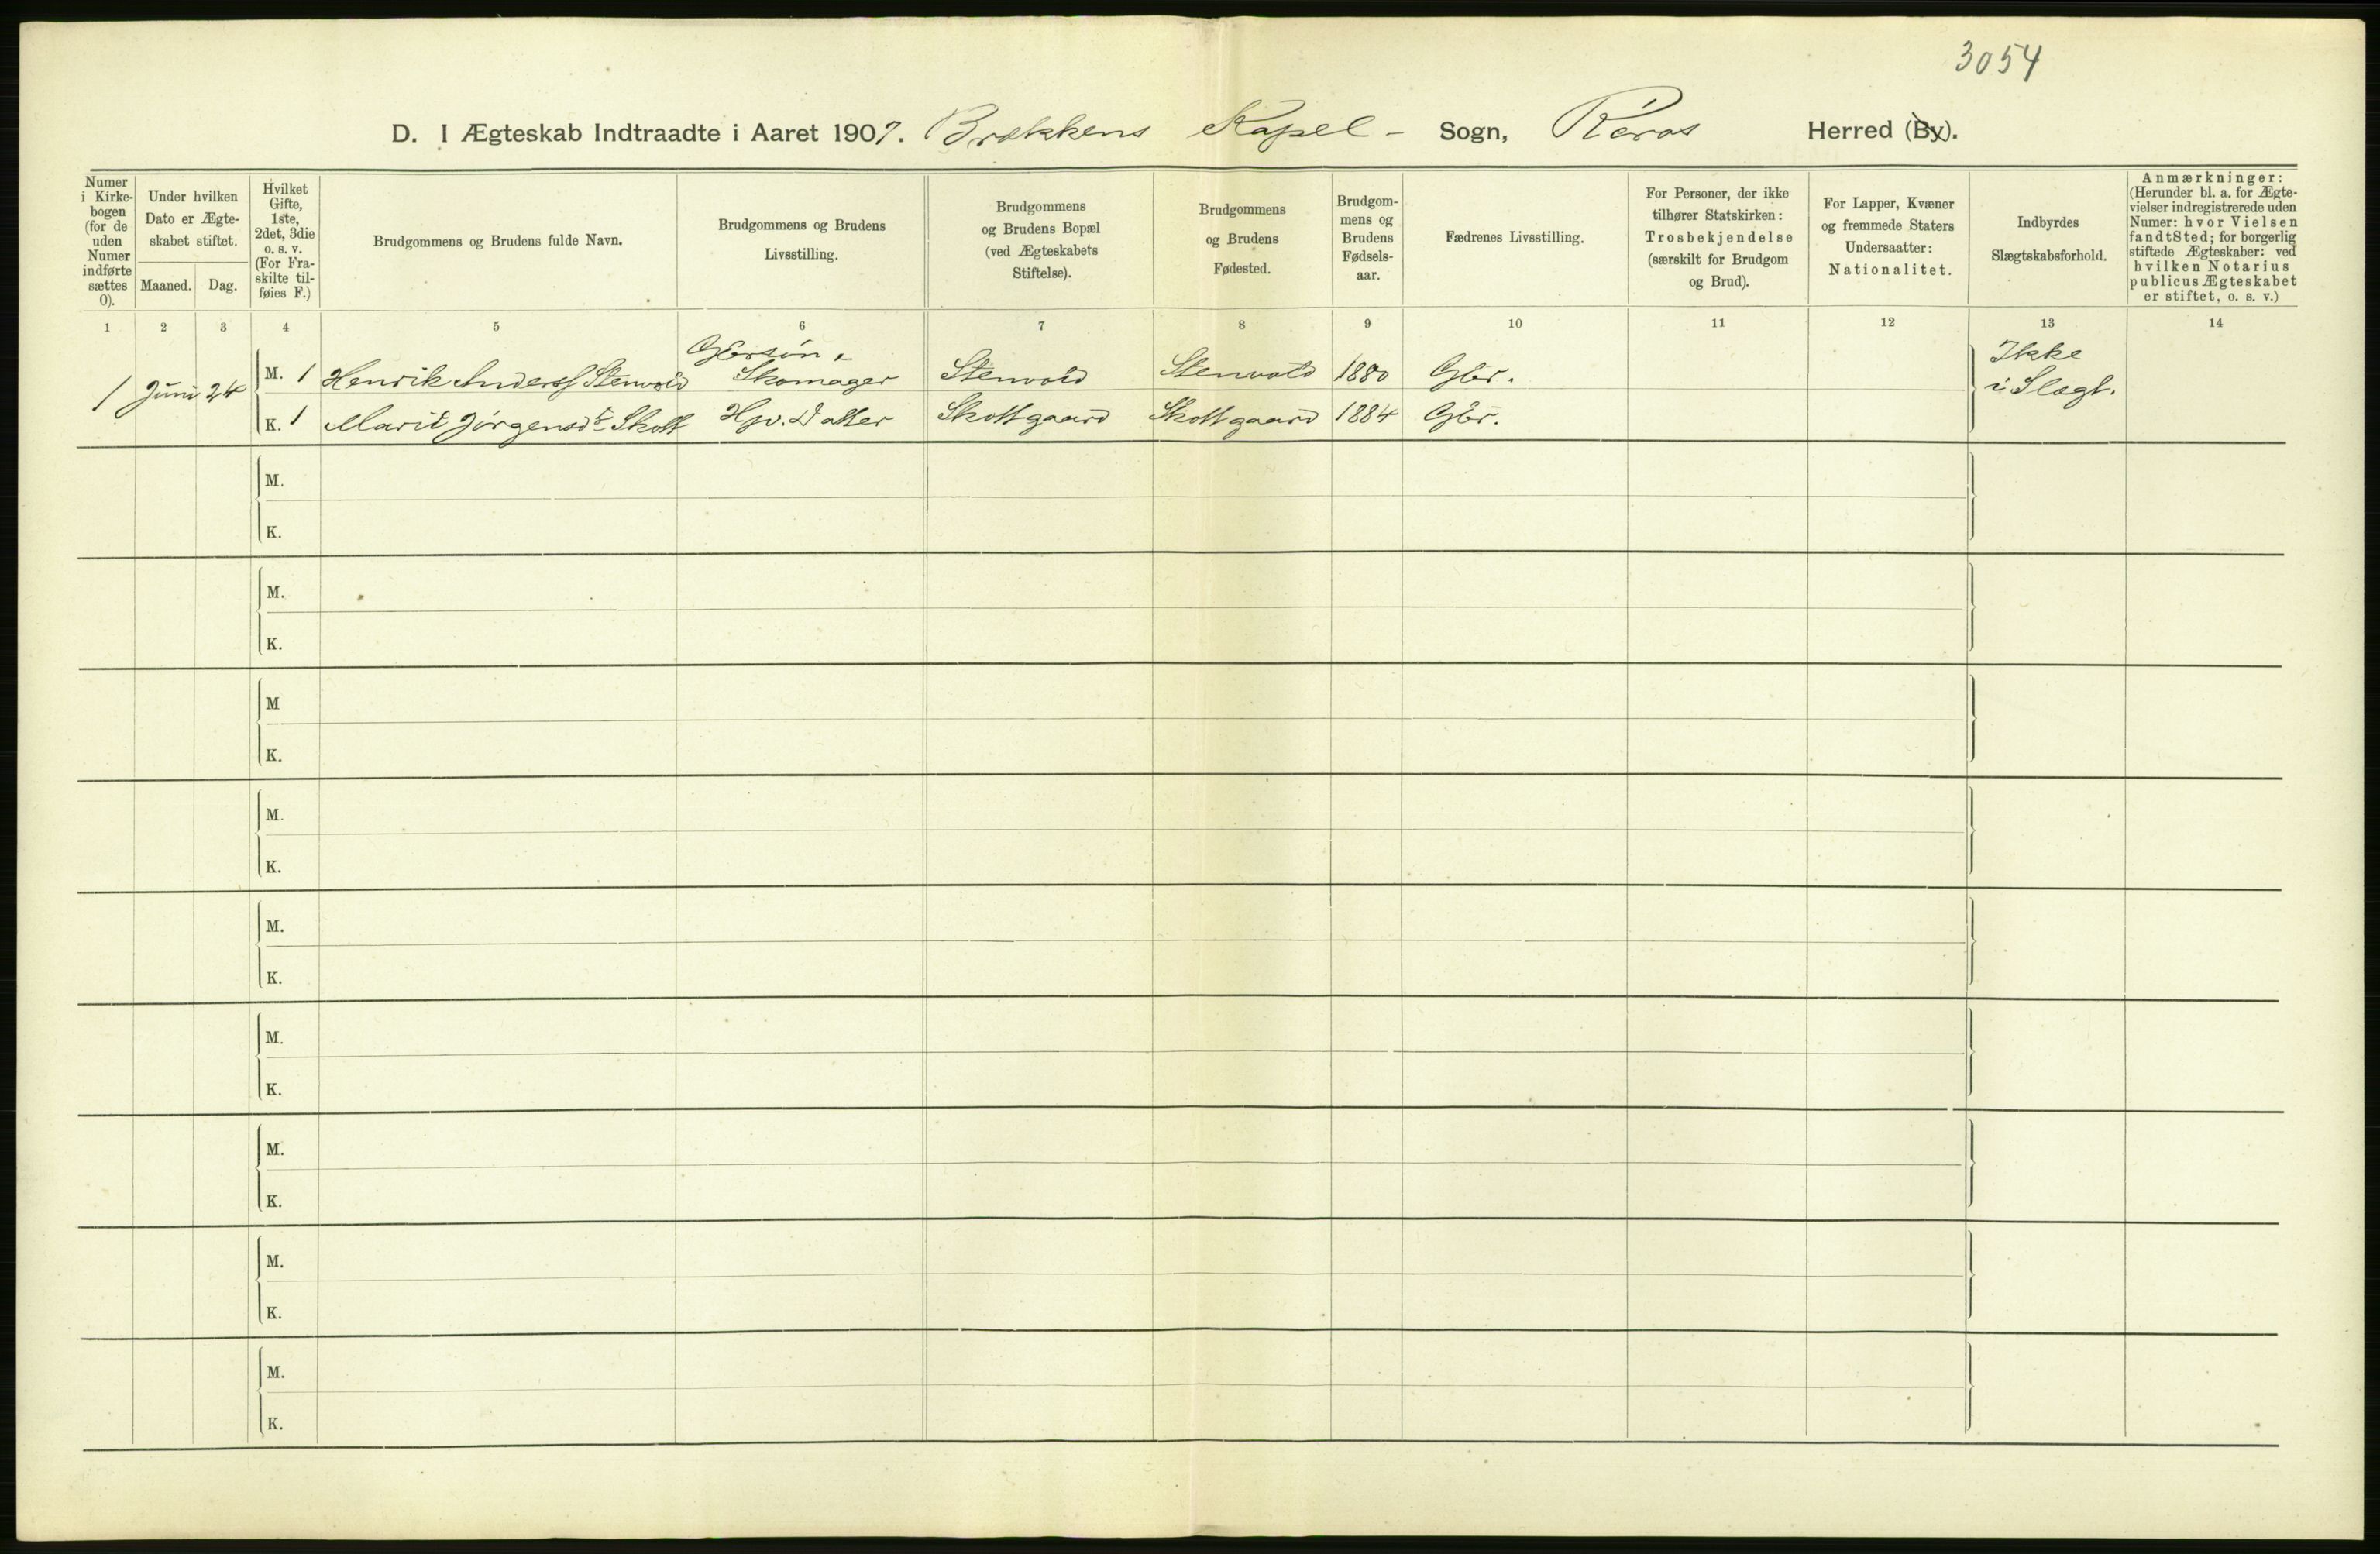 3054
D. I Ægteskab Indtraadte i Aaret 1907. Brækkens Kapel - Sogn, Röros Herred (By).
Numer
i Kirke-
bogen
(for de
uden
Numer
indførte
sættes
0).
Under hvilken
Dato er Ægte-
skabet stiftet.
Maaned. Dag.
Hvilket
Gifte,
1ste,
2det, 3die
o. s. v.
(For Fra-
skilte til-
føies F.)
Brudgommens og Brudens fulde Navn.
Brudgommens og Brudens
Livsstilling.
Brudgommens
og Brudens Bopæl
(ved Ægteskabets
Stiftelse).
Brudgommens
og Brudens
Fødested.
Brudgom-
mens og
Brudens
Fødsels-
aar.
Fædrenes Livsstilling.
For Personer, der ikke
tilhører Statskirken:
Trosbekjendelse
(særskilt for Brudgom
og Brud).
For Lapper, Kvæner
og fremmede Staters
Undersaatter:
Nationalitet.
Indbyrdes
Slægtskabsforhold.
Anmærkninger:
(Herunder bl. a. for Ægte-
vielser indregistrerede uden
Numer: hvor Vielsen
fandt Sted; for borgerlig
stiftede Ægteskaber: ved
hvilken Notarius
publicus Ægteskabet
er stiftet, o. s. v.)
1 2 3 4 5 6 7 8 9 10 11 12 13 14
Gbrsön,
1 Juni 24 M. 1 Henrik Anderss Stenvold Skomager Stenvold Stenvold 1880 Gbr.
Ikke
i Slægt.
K. 1 Marit Jörgensdr Skott Hjv. Datter Skottgaard Skottgaard 1884 Gbr.
M.
K.
M.
K.
M
K.
M.
K.
M.
K.
M.
K.
M.
K.
M.
K.
M.
K.